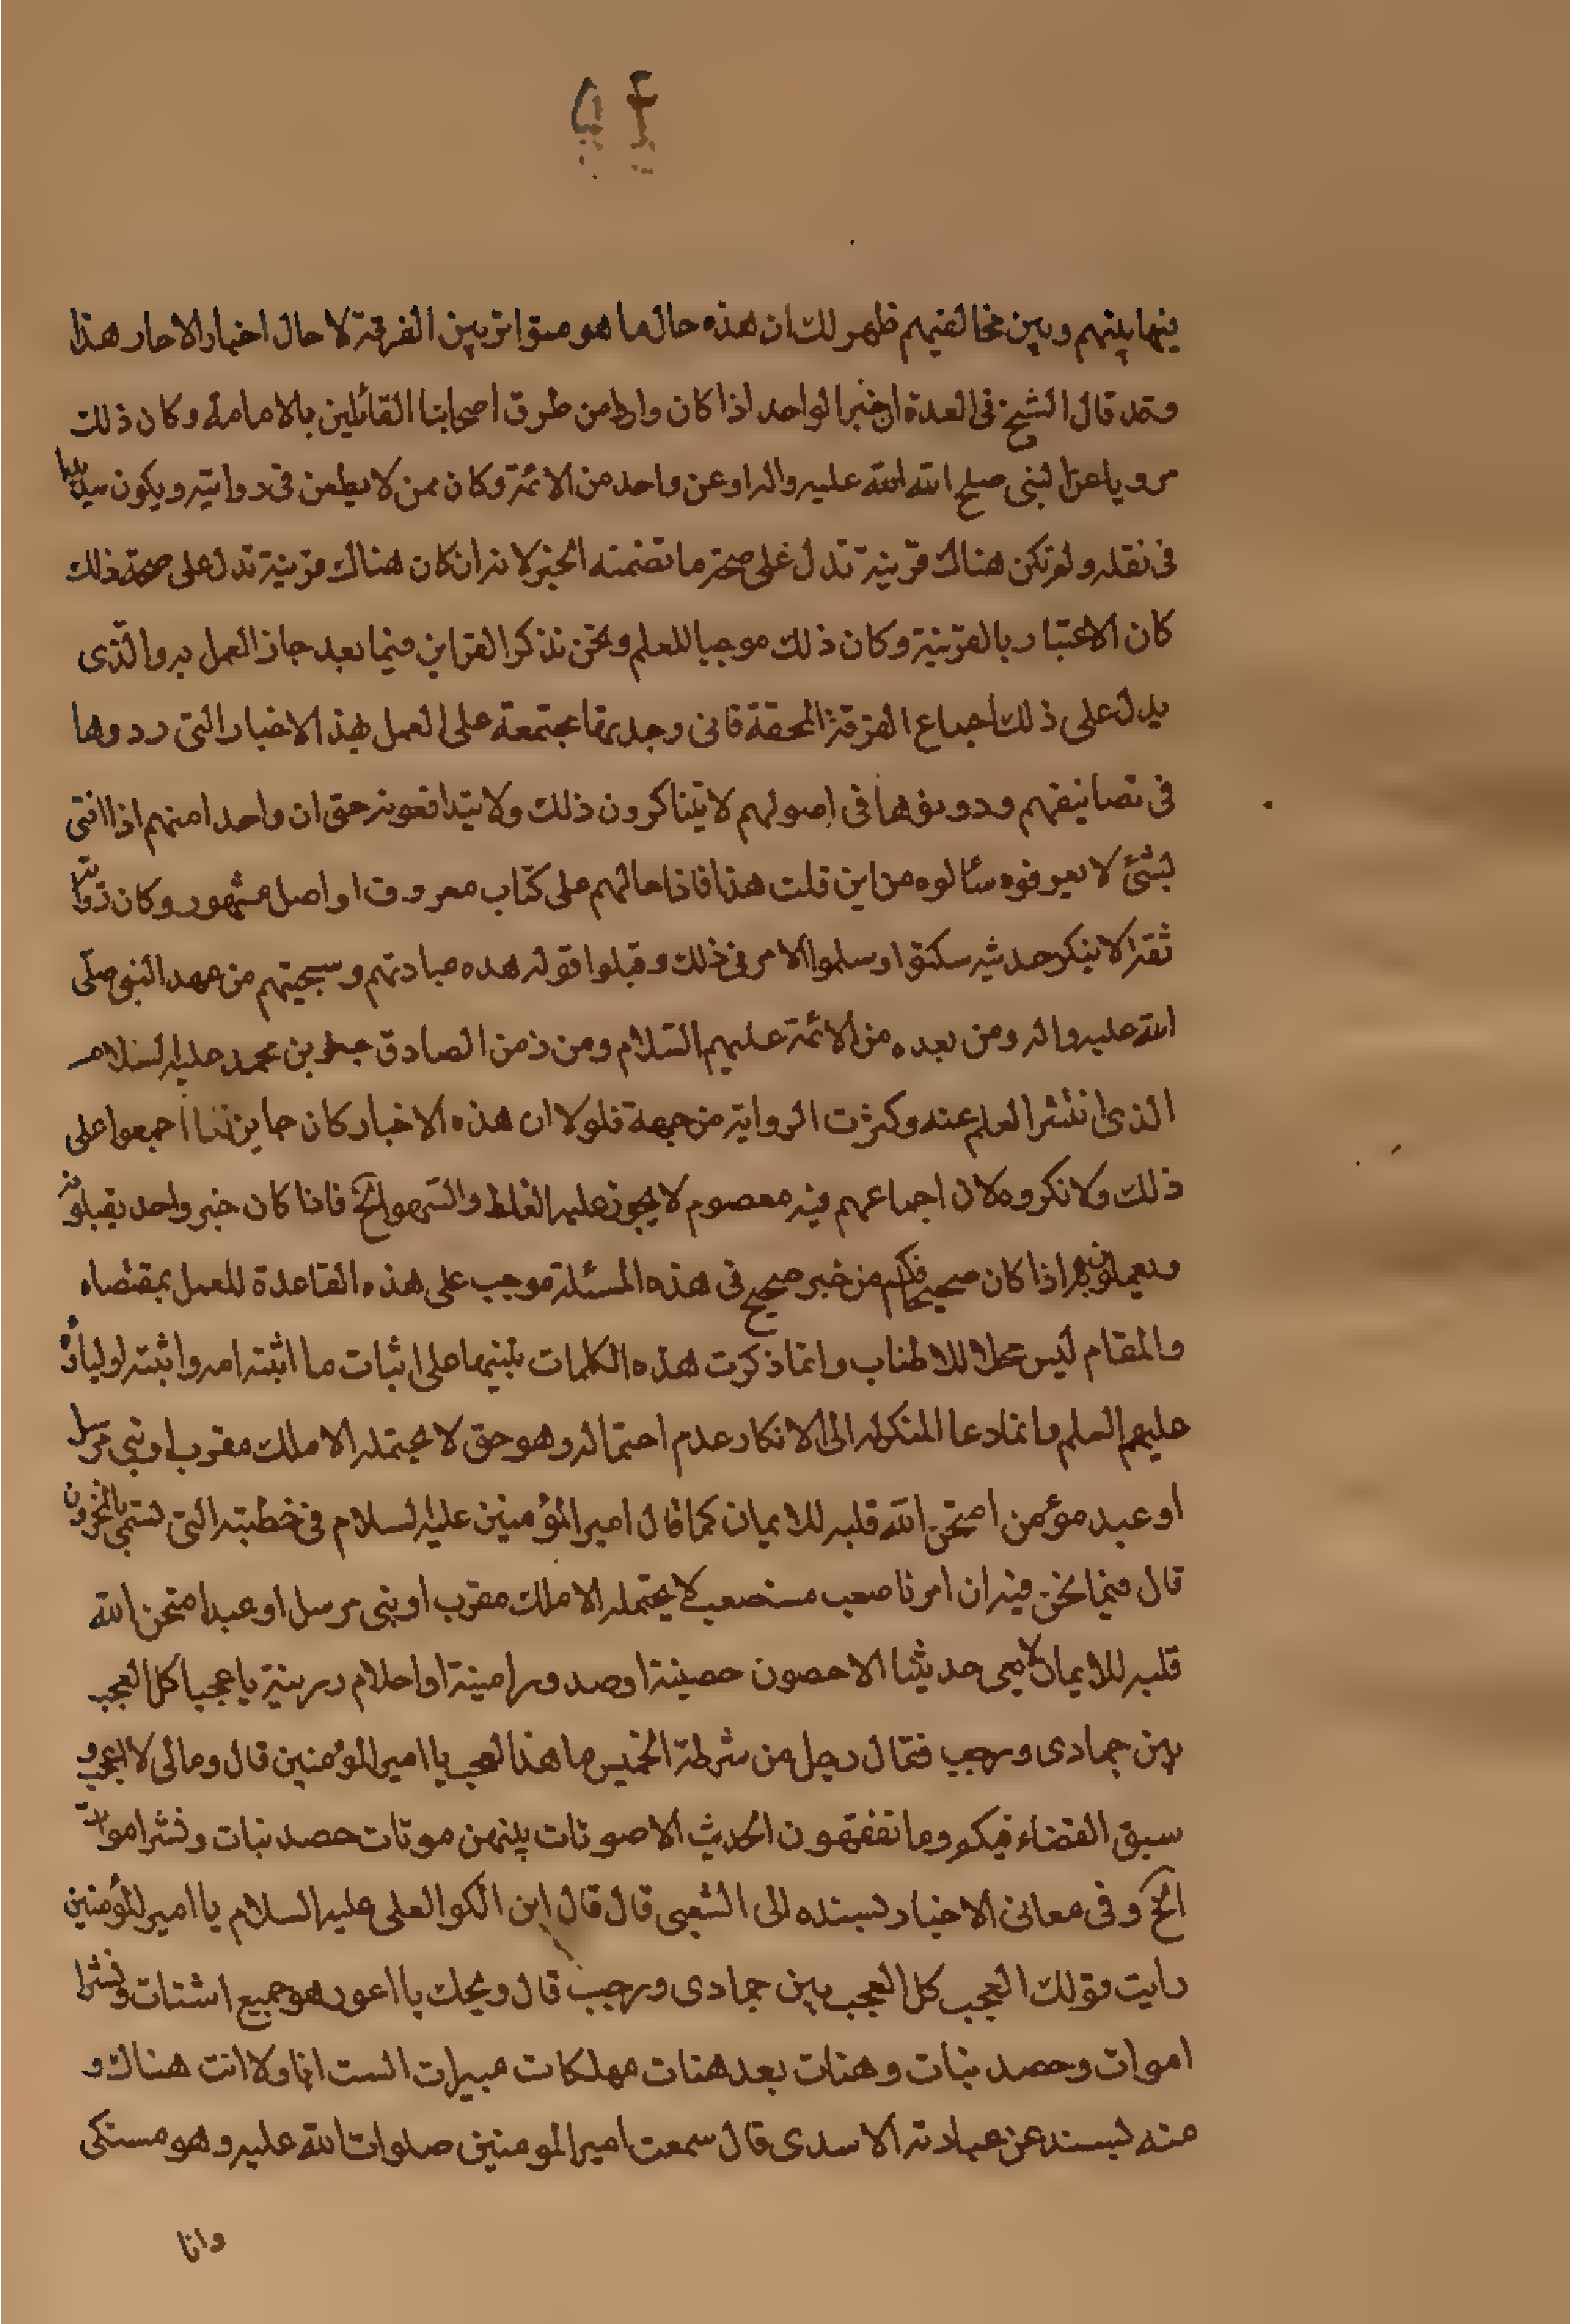 فيما بينهم وبين مخالفيهم ظهر لك ان هذه حال ما هو متواتر بين الفرقة لا حال اخبار الاحاد هذا
وقد قال الشيخ فى العدة ان خبر الواحد اذا كان وارد من طرق اصحابنا القائلين بالامامة وكان ذلك
مرويا عن النبى صلى الله عليه واله او عن واحد من الائمة وكان ممن لا يطعن فى روايته ويكون سديدا
فى نقله ولم تكن هناك قرينة تدل على صحة ما تضمنه الخبر لانه ان كان هناك قرينة تدل على صحة ذلك
كان الاعتبار بالقرينة وكان ذلك موجبا للعلم ونحن نذكر القراين فيما بعد جاز العمل به والذى
يدل على ذلك اجماع الفرقة المحقة فانى وجدتها مجتمعة على العمل بهذه الاخبار التى رووها
فى تصانيفهم ودونوها فى اصولهم لا يتناكرون ذلك ولا يتدافعونه حتى ان واحدا منهم اذا افتى
بشئ لا يعرفوه سئالوه من اين قلت هذا فاذا احالهم على كتاب معروف او اصل مشهور وكان راويه
ثقة لا ينكر حديثه سكتوا وسلموا الامر فى ذلك وقبلوا قوله هذه عادتهم وسجيتهم من عهد النبى صلى
الله عليه واله ومن بعده من الائمة عليهم السلام ومن زمن الصادق جعفر بن محمد عليه السلام
الذى انتشر العلم عنه وكثرت الرواية من جهة فلولا ان هذه الاخبار كان جايزا لما اجمعوا على
ذلك ولانكروه لان اجماعهم فيه معصوم لا يجوز عليه الغلط والسهو الخ فاذا كان خبر واحد يقبلونه
ويعملون به اذا كان صحيحا فكم من خبر صحيح فى هذه المسئلة موجب على هذه القاعدة للعمل بمقتضاه
والمقام ليس محلا للاطناب وانما ذكرت هذه الكلمات تنبيها على اثبات ما اثبته الله واثبته اولياؤه
عليهم السلم وانما دعا المنكر له الى الانكار عدم احتماله وهو حق لا يحتمله الا ملك مقرب او نبى مرسل
او عبد مؤمن امتحن الله قلبه للايمان كما قال امير المؤمنين عليه السلام فى خطبته التى تسمى بالمخزون
قال فيما نحن فيه ان امرنا صعب مستصعب لا يحتمله الا ملك مقرب او نبى مرسل او عبد امتحن الله
قلبه للايمان لا يعى حديثنا الا حصون حصينة او صدور امينة او احلام رزينة يا عجبا كل العجب
بين جمادى ورجب فقال رجل من شرطة الخميس ما هذا العجب يا امير المؤمنين قال ومالى لا اعجب و
سبق القضاء فيكم وما تفقهون الحديث الا صوتات بينهن موتات حصد نبات ونشر اموات
الخ وفى معانى الاخبار بسنده الى الشعبى قال قال ابن الكوا لعلى عليه السلام يا امير المؤمنين
رايت قولك العجب كل العجب بين جمادى ورجب قال ويحك يا اعور هو جميع اشتات ونشر
اموات وحصد نبات وهنات بعد هنات مهلكات مبيرات الست انا ولا انت هناك و
منه بسنده عن عباد ته الاسدى قال سمعت امير المومنين صلوات الله عليه وهو مستكى
وانا